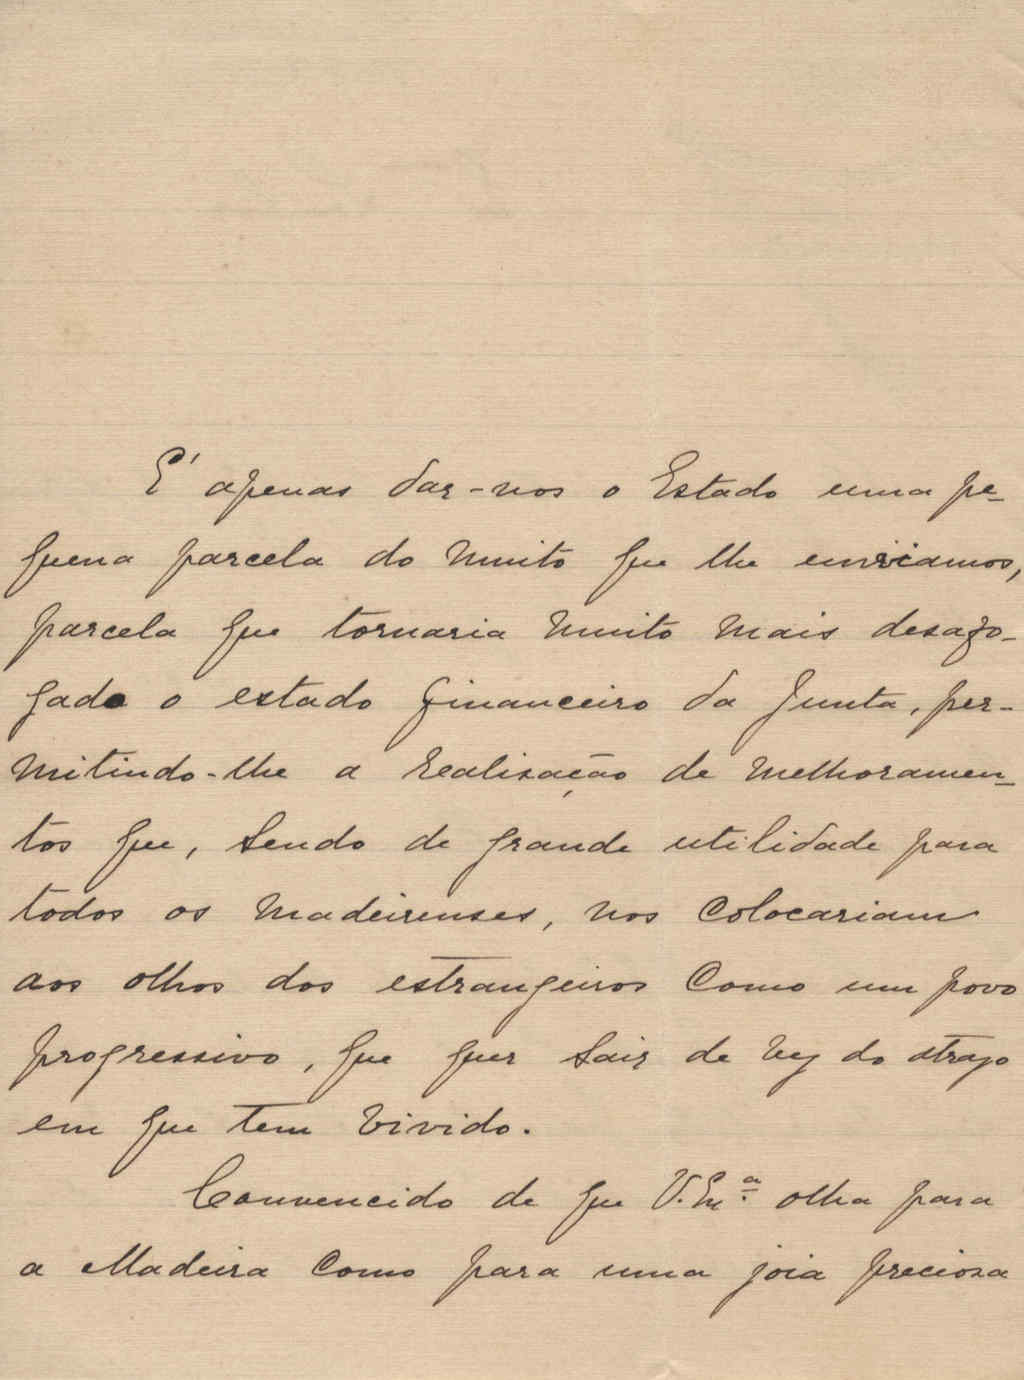 E' apenas dar-nos o Estado uma pe-
quena parcela do muito que lhe enviamos,
parcela que tornaria muito mais desafo-
gado o estado financeiro da Junta, per-
mitindo-lhe a realisação de melhoramen-
tos que, sendo de grande utilidade para
todos os madeirenses, nos colocariam
aos olhos dos estrangeiros como um povo
progressivo, que quer sair de vez do atrazo
em que tem vivido.
Convencido de que V. Ex.ª olha para
a Madeira como para uma joia preciosa